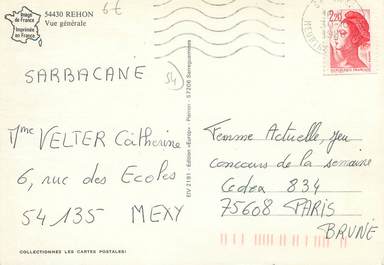 Image
de France
Imprimée
en France
54430 REHON
Vue générale
6€
2,20
SARBACANE
54
Mme VELTER Catherine
6, rue des Ecoles
54135 MEXY
EIV 2181 - Edition «Europ» Pierron - 57206 Sarreguemines
Femme Actuelle, jeu
concours de la semaine
Cedex 834
75608 PARIS
BRUNE
COLLECTIONNEZ LES CARTES POSTALES!